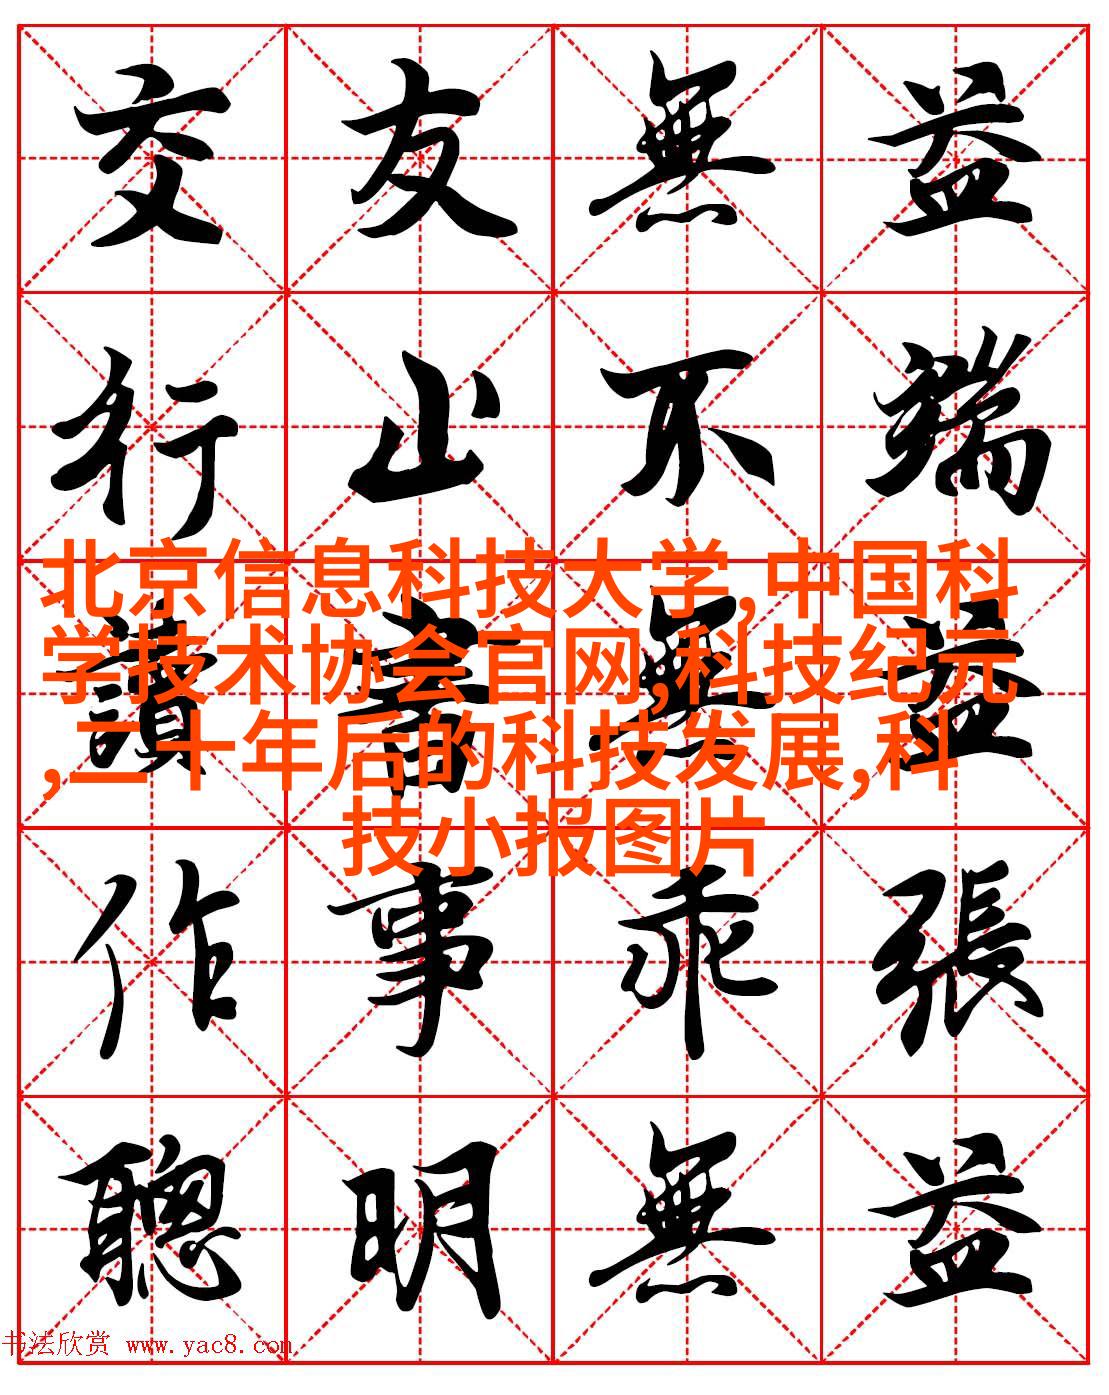 交友無益
行止不端
北京信息科技大学,中国科
学技术协会官网,科技纪元
,二十年后的科技发展,科
技小报图片
讀書無益
作事乖張
聰明無益
书法欣赏 www.yac8.com